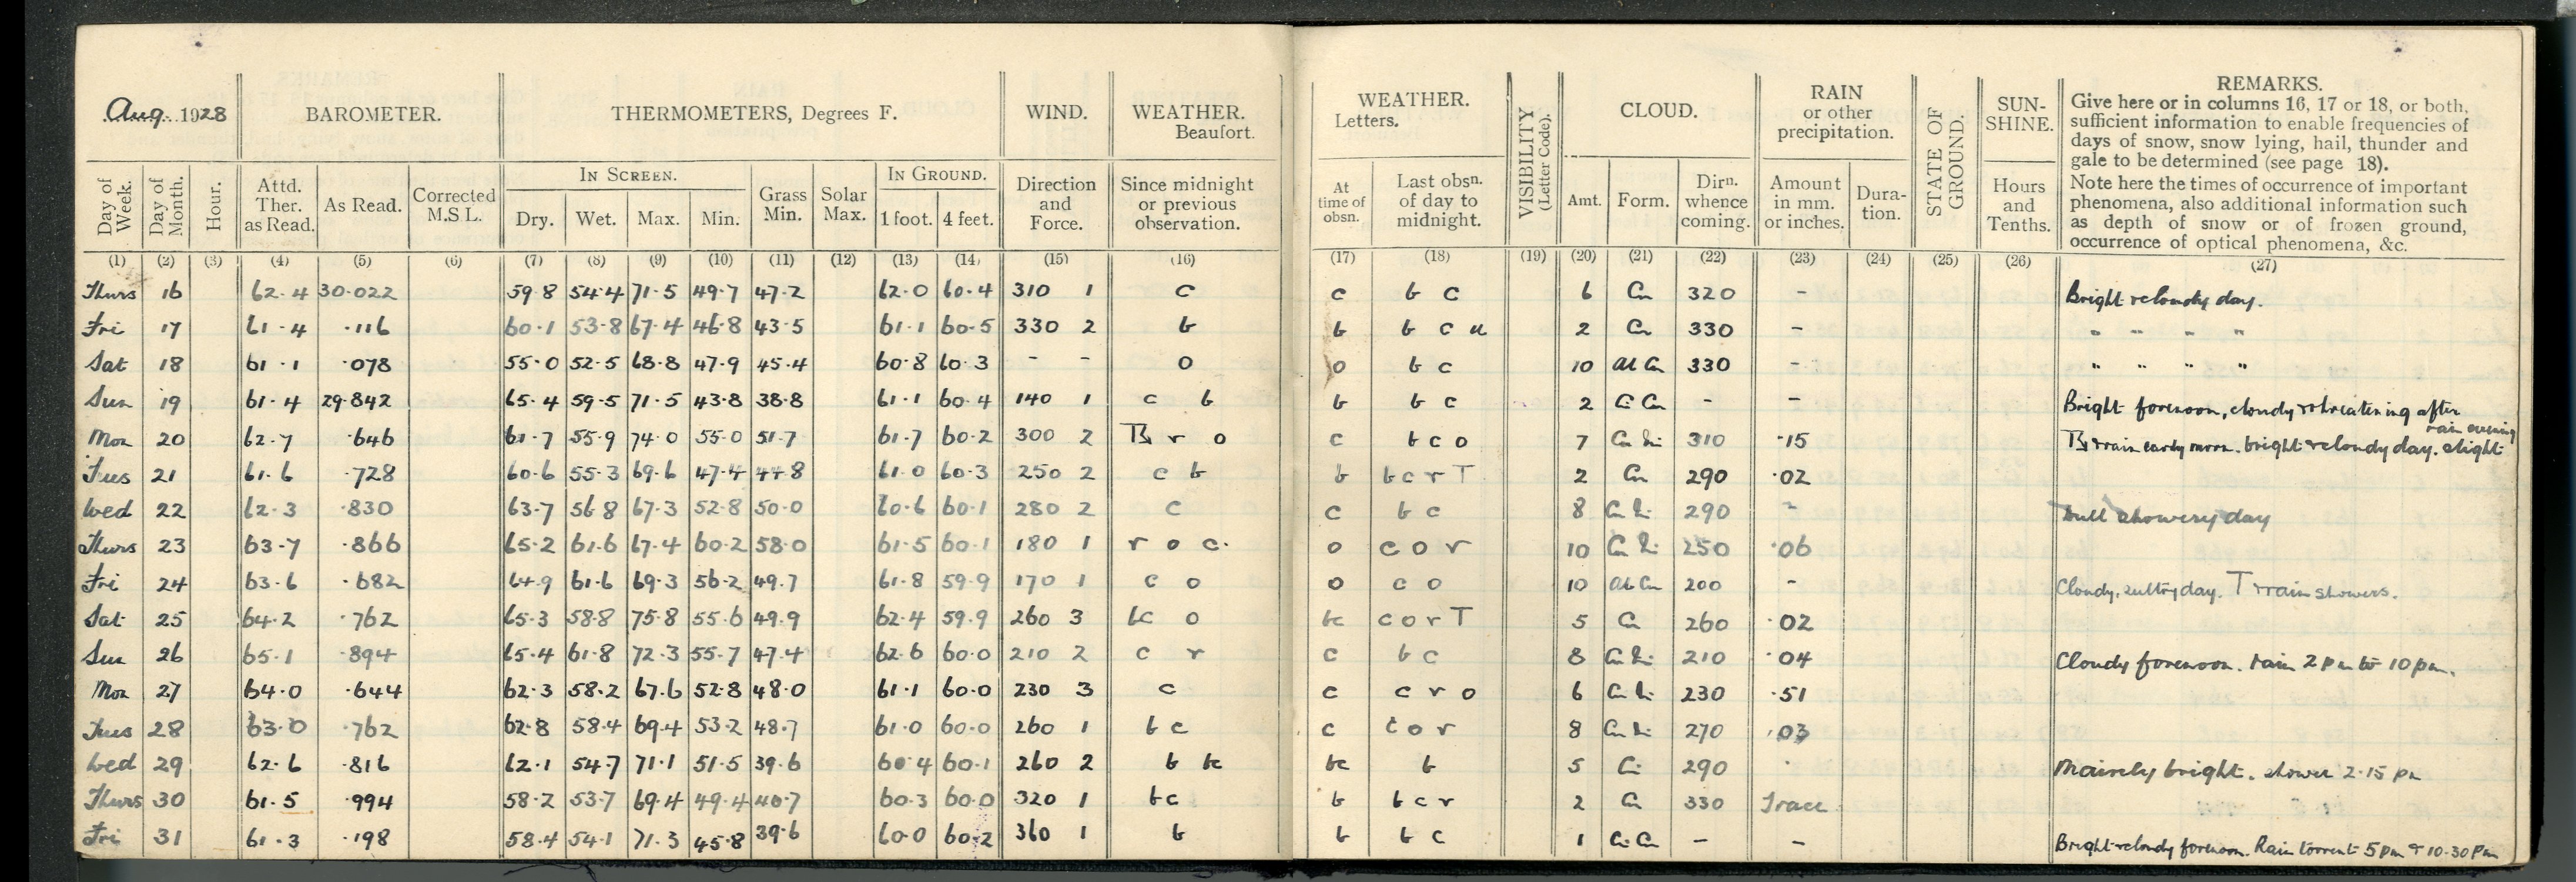 Aug. 1928
BAROMETER.
THERMOMETERS, Degrees F.
WIND.
WEATHER.
Beaufort.
WEATHER.
Letters.
VISIBILITY
(Letter Code).
CLOUD.
RAIN
or other
precipitation.
STATE OF
GROUND.
SUN-
SHINE.
REMARKS.
Give here or in columns 16, 17 or 18, or both,
sufficient information to enable frequencies of
days of snow, snow lying, hail, thunder and
gale to be determined (see page 18).
Note here the times of occurrence of important
phenomena, also additional information such
as depth of snow or of frozen ground,
occurrence of optical phenomena, &c.
Day of
Week.
Day of
Month.
Hour.
Attd.
Ther.
as Read.
As Read.
Corrected
M.S.L.
IN SCREEN.
Dry. Wet. Max. Min.
Grass
Min.
Solar
Max.
IN GROUND.
1 foot. 4 feet.
Direction
and
Force.
Since midnight
or previous
observation.
At
time of
obsn.
Last obsn.
of day to
midnight.
Amt. Form.
Dirn.
whence
coming.
Amount
in mm.
or inches.
Dura-
tion.
Hours
and
Tenths.
(1) (2) (3) (4) (5) (6) (7) (8) (9) (10) (11) (12) (13) (14) (15) (16) (17) (18) (19) (20) (21) (22) (23) (24) (25) (26) (27)
Thurs 16 62.4 30.022 59.8 54.4 71.5 49.7 47.2 62.0 60.4 310 1 c c b c 6 Cu 320 - Bright & cloudy day.
Fri 17 61.4 .116 60.1 53.8 67.4 46.8 43.5 61.1 60.5 330 2 b b b c u 2 Cu 330 - " " " "
Sat 18 61.1 .078 55.0 52.5 68.8 47.9 45.4 60.8 60.3 - - o o b c 10 Al Cu 330 - " " " "
Sun 19 61.4 29.842 65.4 59.5 71.5 43.8 38.8 61.1 60.4 140 1 c b b b c 2 Ci Cu - - Bright forenoon, cloudy & threatening after
Mon 20 62.7 .646 61.7 55.9 74.0 55.0 51.7 61.7 60.2 300 2 r o c b c o 7 Cu Ni 310 .15 rain early morn. bright & cloudy day. slight
rain evening
Tues 21 61.6 .728 60.6 55.3 69.6 47.4 44.8 61.0 60.3 250 2 c b b b c r T 2 Cu 290 .02
Wed 22 62.3 .830 63.7 56.8 67.3 52.8 50.0 60.6 60.1 280 2 c c b c 8 Cu Ni 290 - Dull showery day
Thurs 23 63.7 .866 65.2 61.6 67.4 60.2 58.0 61.5 60.1 180 1 r o c. o c o r 10 Cu Ni 250 .06
Fri 24 63.6 .682 64.9 61.6 69.3 56.2 49.7 61.8 59.9 170 1 c o o c o 10 Al Cu 200 - Cloudy, sultry day. T & rain showers.
Sat 25 64.2 .762 65.3 58.8 75.8 55.6 49.9 62.4 59.9 260 3 bc o bc c o r T 5 Cu 260 .02
Sun 26 65.1 .894 65.4 61.8 72.3 55.7 47.4 62.6 60.0 210 2 c r c b c 8 Cu Ni 210 .04 Cloudy forenoon. rain 2 pm to 10 pm.
Mon 27 64.0 .644 62.3 58.2 67.6 52.8 48.0 61.1 60.0 230 3 c c c r o 6 Cu Ni 230 .51
Tues 28 63.0 .762 62.8 58.4 69.4 53.2 48.7 61.0 60.0 260 1 b c c c o r 8 Cu Ni 270 .03
Wed 29 62.6 .816 62.1 54.7 71.1 51.5 39.6 60.4 60.1 260 2 b bc bc b 5 Ci 290 Mainly bright. shower 2.15 pm
Thurs 30 61.5 .994 58.2 53.7 69.4 49.4 40.7 60.3 60.0 320 1 bc b b c r 2 Cu 330 Trace
Fri 31 61.3 .198 58.4 54.1 71.3 45.8 39.6 60.0 60.2 360 1 b b b c 1 Ci Cu - - Bright & cloudy forenoon. Rain torrent 5 pm & 10.30 pm